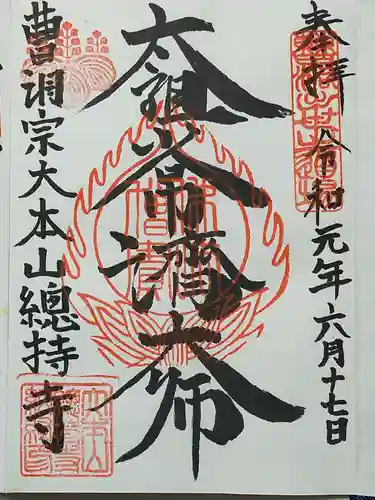 奉拝 令和元年六月十七日
太祖常済大师
曹洞宗大本山總持寺